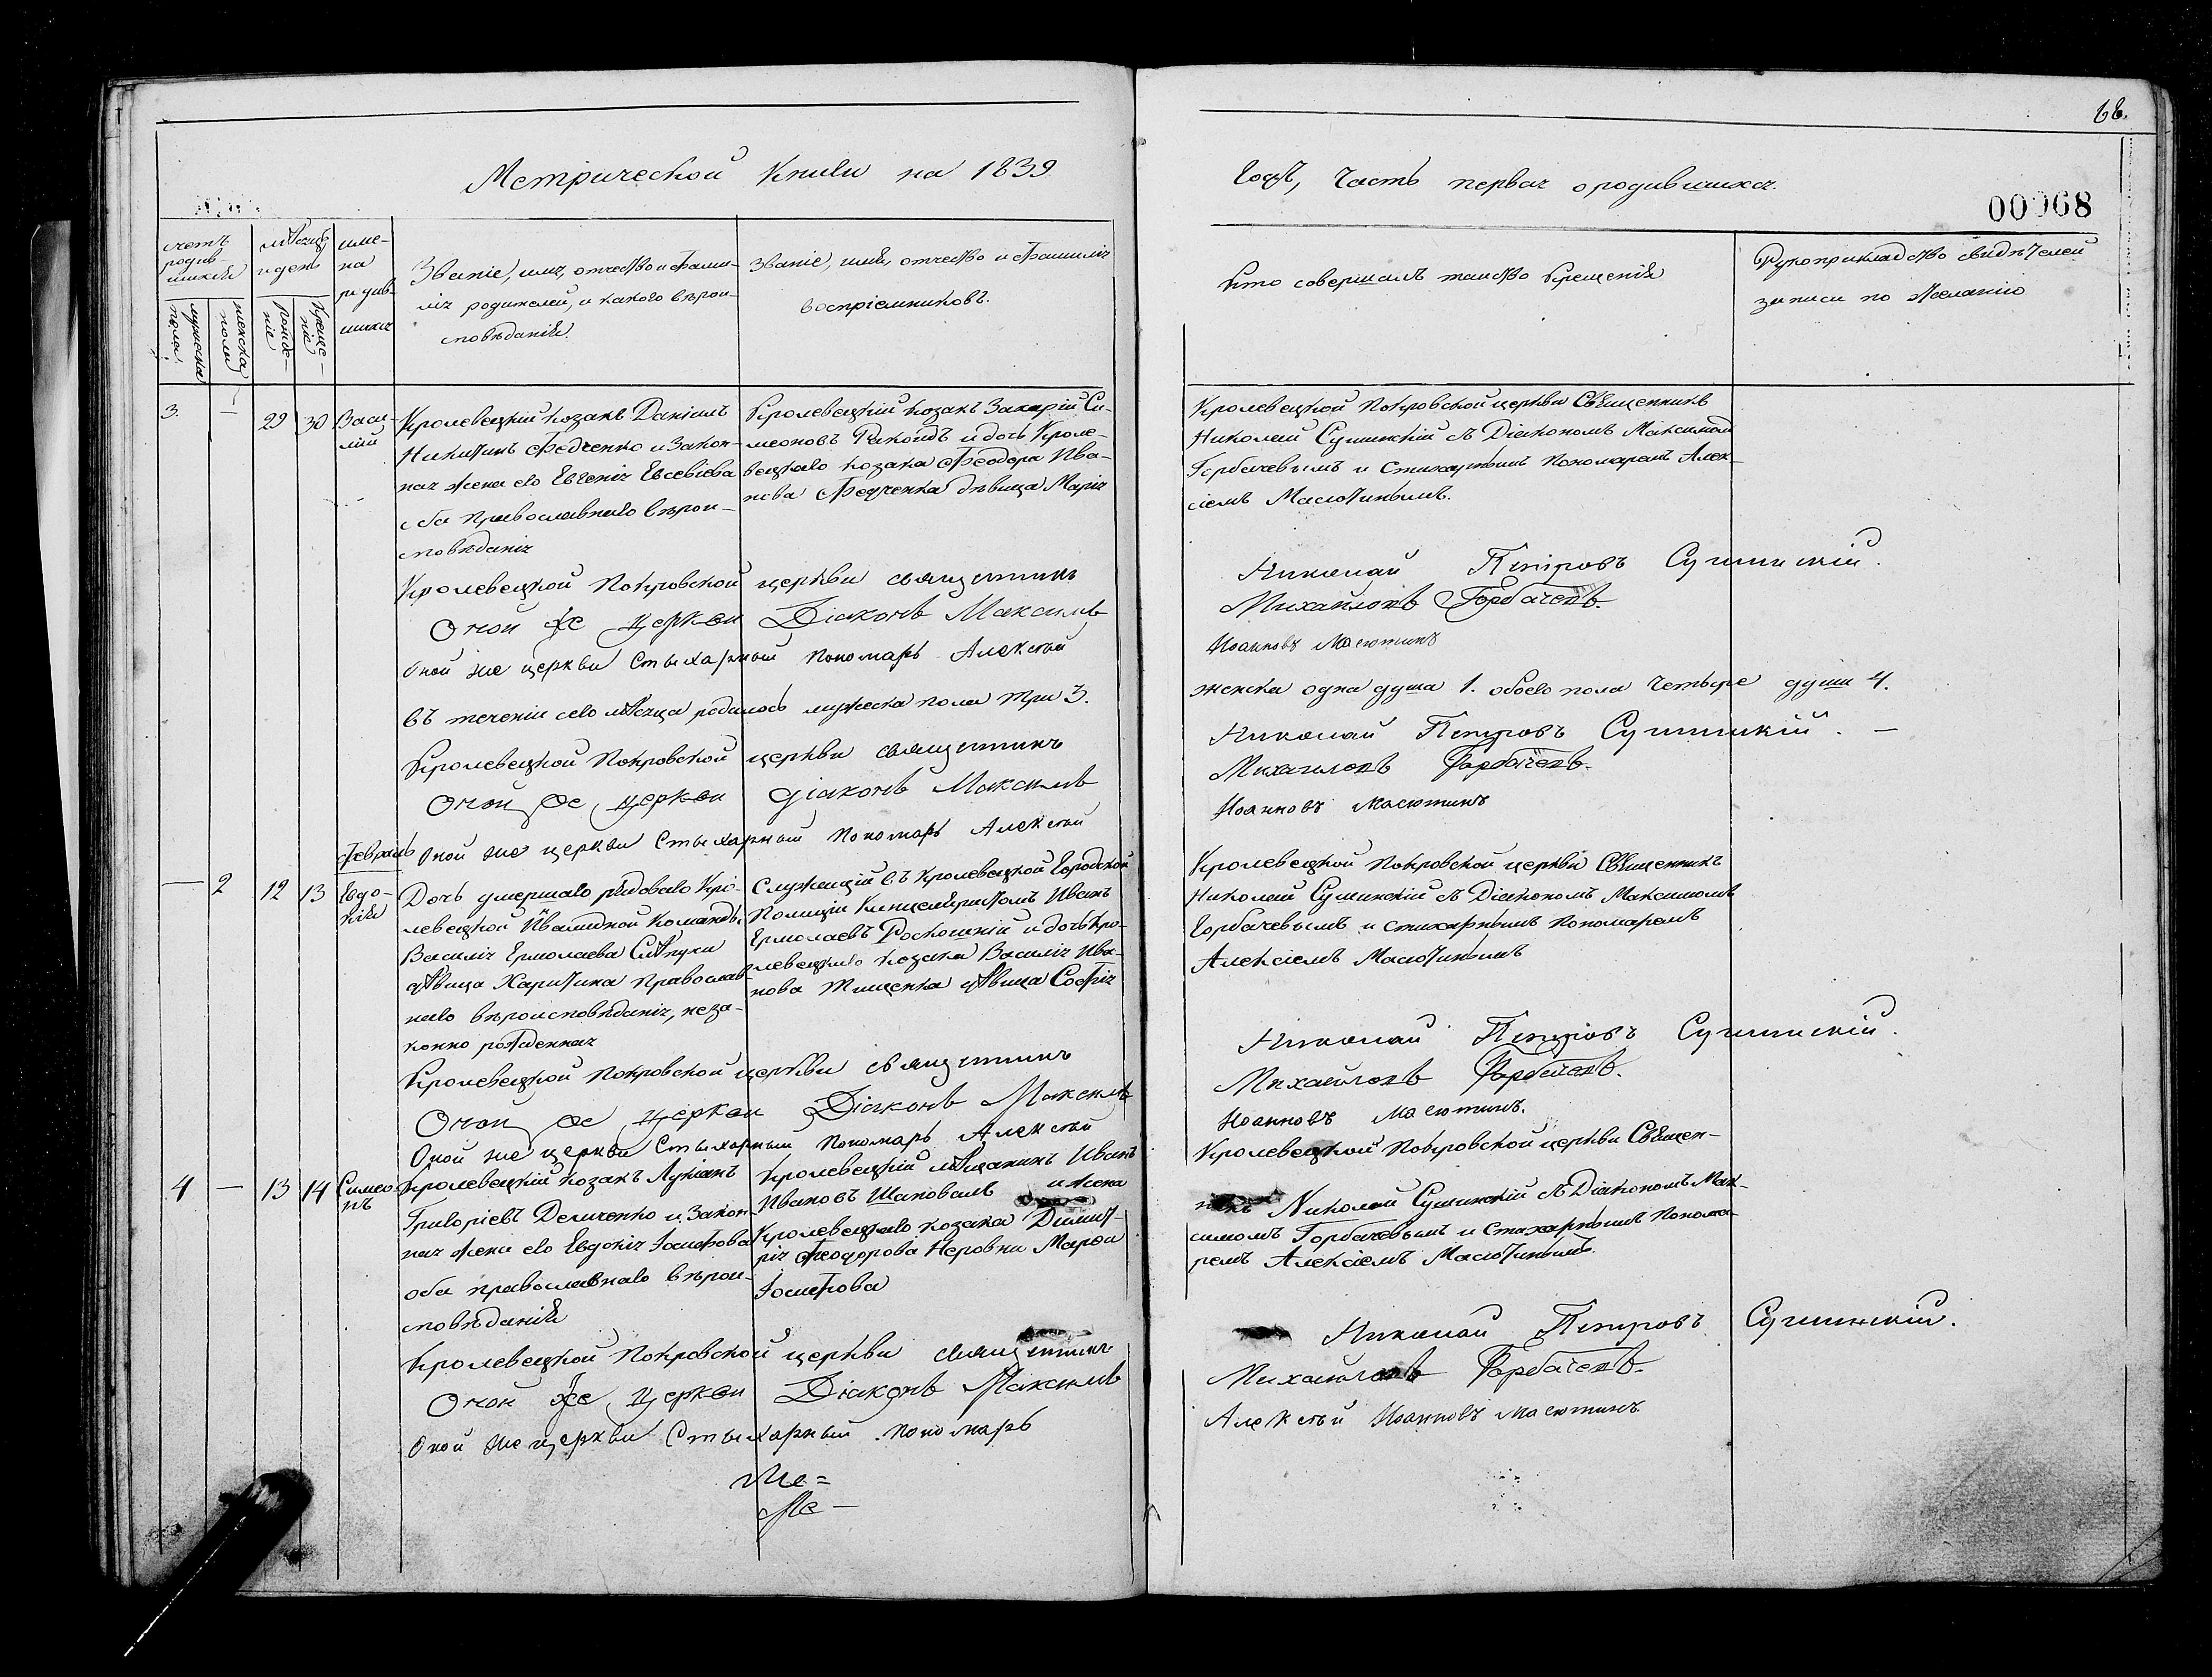 68.
Метрической Книги на 1839
Года, Часть первая о родившихся.
00068
счетъ родив-шихся
мужеска пола
женска пола
мѣсяцъ и день
рожде-ніе
креще-ніе
име-на родив-шихся
Званіе, имя, отчество и фами-
лія родителей, и какого вѣрои-
сповѣданія.
Званіе, имя, отчество и фамилія
воспріемниковъ.
Кто совершалъ таинство крещенія
Рукоприкладство свидѣтелей
записи по желанію
3. — 29 30 Васи-
лій
Кролевецкій козакъ Даніилъ
Никитинъ Федченко и закон-
ная жена его Евгенія Евсевіева
оба православнаго вѣрои-
сповѣданія
Кролевецкій козакъ Захарій Си-
меоновъ Ракоидъ и дочь Кроле-
вецкаго козака Феодора Ива-
нова Федченка дѣвица Марія
Кролевецкой Покровской церкви Священникъ
Николай Сушинскій съ Діякономъ Максимомъ
Горбачевымъ и стихарнымъ Пономаремъ Алек-
сіемъ Масютинымъ.
Кролевецкой Покровской церкви священникъ Николай Петровъ Сушинскій.
Оной же церкви Діаконъ Максимъ Михайловъ Горбачевъ.
Оной же церкви Стыхарный пономарь Алексѣй Иоанновъ Масютинъ
въ теченіи сего мѣсяца родилось мужеска пола три 3. женска одна душа 1. обоего пола четыре души 4.
Кролевецкой Покровской церкви священникъ Николай Петровъ Сушинскій. —
Оной же церкви діаконъ Максимъ Михайловъ Горбачевъ.
Оной же церкви Стыхарный Пономарь Алексѣй Иоанновъ Масютинъ
Февраль
— 2 12 13 Евдо-
кія
Дочь умершаго рядоваго Кро-
левецкой Ивалидной команды
Василія Ермолаева Слѣпухи
дѣвица Харитина православ-
наго вѣроисповѣданія, неза-
конно рожденная
Служащій въ Кролевецкой Городской
Полиціи Канцеляристомъ Иванъ
Ермолаевъ Роскошній и дочь Кро-
левецкаго козака Василія Ива-
нова Тищенка дѣвица Софія
Кролевецкой Покровской церкви Священникъ
Николай Сушинскій съ Діякономъ Максимомъ
Горбачевымъ и стихарнымъ Пономаремъ
Алексіемъ Масютинымъ
Кролевецкой Покровской церкви священникъ Николай Петровъ Сушинскій.
Оной же церкви Діаконъ Максимъ Михайловъ Горбачевъ.
Оной же церкви Стыхарный пономарь Алексѣй Иоанновъ Масютинъ.
4 — 13 14 Симео-
нъ
Кролевецкій козакъ Лукіанъ
Григоріевъ Демченко и закон-
ная жена его Евдокія Іосифова
оба православнаго вѣрои-
сповѣданія
Кролевецкій мѣщанинъ Иванъ
Ивановъ Шаповалъ и жена
Кролевецкаго козака Димит-
рія Феодорова Неровни Марфа
Іосифова
Кролевецкой Покровской церкви Священ-
никъ Николай Сушинскій съ Діякономъ Мак-
симомъ Горбачевымъ и стихарнымъ Понома-
ремъ Алексіемъ Масютинымъ.
Кролевецкой Покровской церкви священникъ Николай Петровъ Сушинскій.
Оной же церкви Діаконъ Максимъ Михайловъ Горбачевъ.
Оной же церкви Стыхарный пономарь Алексѣй Иоанновъ Масютинъ